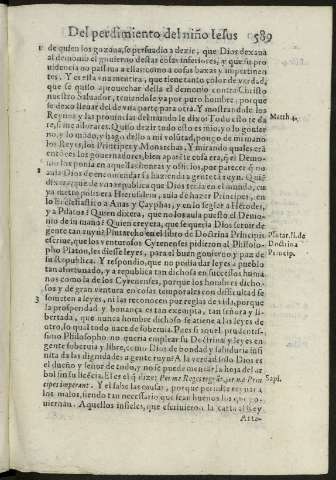 Del perdimiento del niño Iesus 589
de quien los gozaua, se persuadio a dezir, que Dios dexaua
al demonio el gouierno destas cosas inferiores, y que su pro
uidencia no passaua a ellas: como a cosas baxas y impertinen
tes. Y es esta vna mentira, que tiene tanto color de verdad,
que se quiso aprouechar della el demonio contra Christo
nuestro Saluador, teniendole ya por puro hombre, porque
se dexo lleuar del de vna parte para otra. Y mostrandole los
Reynos y las prouincias del mundo le dixo: Todo esto te da
re, si me adorares. Quiso dezir todo esto es mio, y lo gouier
no, y lo mando, y hago dello a mi voluntad, pongo de mi mano
los Reyes, los Principes y Monarchas. Y mirando quales era
entonces los gouernadores, bien aparēte cosa era, q̃ el Demo-
nio los ponia en aquellas honras y officios, por parecer q̃ no
auia Dios de encomendar sa hazienda a gente tā ruyn. Quiē
dixera, que de vna republica que Dios tenia en el mundo, cu
ya metropoli fuesse Hierusalem, auia de hazer Principes, en
lo Ecclesiastico a Anas y Cayphas: y en lo seglar a Herodes,
y a Pilatos? Quien dixera, que no los auia puesto el Demo-
nio de su mano? Quien creyera, que se queria Dios seruir de
gente tan ruyn? Plutarcho en el libro de Doctrina Principis
escriue, que los venturosos Cyrenenses pidieron al Philoso-
pho Platon, les diesse leyes, para el buen gouierno y paz de
su Republica. Y respondio, que no podia dar leyes a pueblo
tan afortunado, y a republica tan dichosa en successos huma
nos como la de los Cyrenenses, porque los hombres dicho-
sos y de gran ventura en cosas temporales con dificultad se
someten a leyes, ni las reconocen por reglas de vida, porque
la prosperidad y bonança es tan exempta, tan señora y li-
bertada, que nunca hombre dichoso se atiene a las leyes de
otro, lo qual todo nace de soberuia. Pues si aquel prudentis-
simo Philosopho no queria emplear su Doctrina y leyes en
gente soberuia y libre, como Dios de bondad y sabiduria infi
nita da las dignidades a gente ruyn? A la verdad solo Dios es
el dueño y señor de todo, y no se puede menear la hoja del ar
bol sin su licēcia. El es el q̃ dize: Per me Reges regnāt, per me Prin
cipes imperant. Y el rasse las causas, porque permite reynar a
los malos, siendo tan necessario que sean buenos los que go
uiernan. Aquellos infieles, que escriuieron la carta al Rey
Arta-
Matth.4.
Plutar. li. de
Doctrina
Princip.
Sapi.